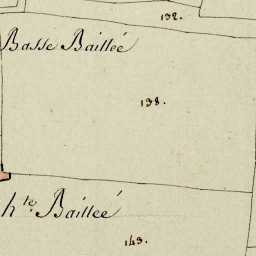 132.
Basse Baillée
138.
h^te. Baillée
143.